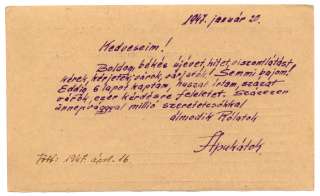 1947. január 20.
Kedveseim!
Boldog, békés újévet, hitet, viszontlátást
kérek, kérjetek, várok, várjatok! Semmi bajom!
Eddig 6 lapot kaptam, huszat írtam, százat
várok, ezer kérdésre feleletet. Százezer
ünnepnappal millió szeretetcsókkal
álmodik Rólatok
Apukátok
1947. ápr. 16